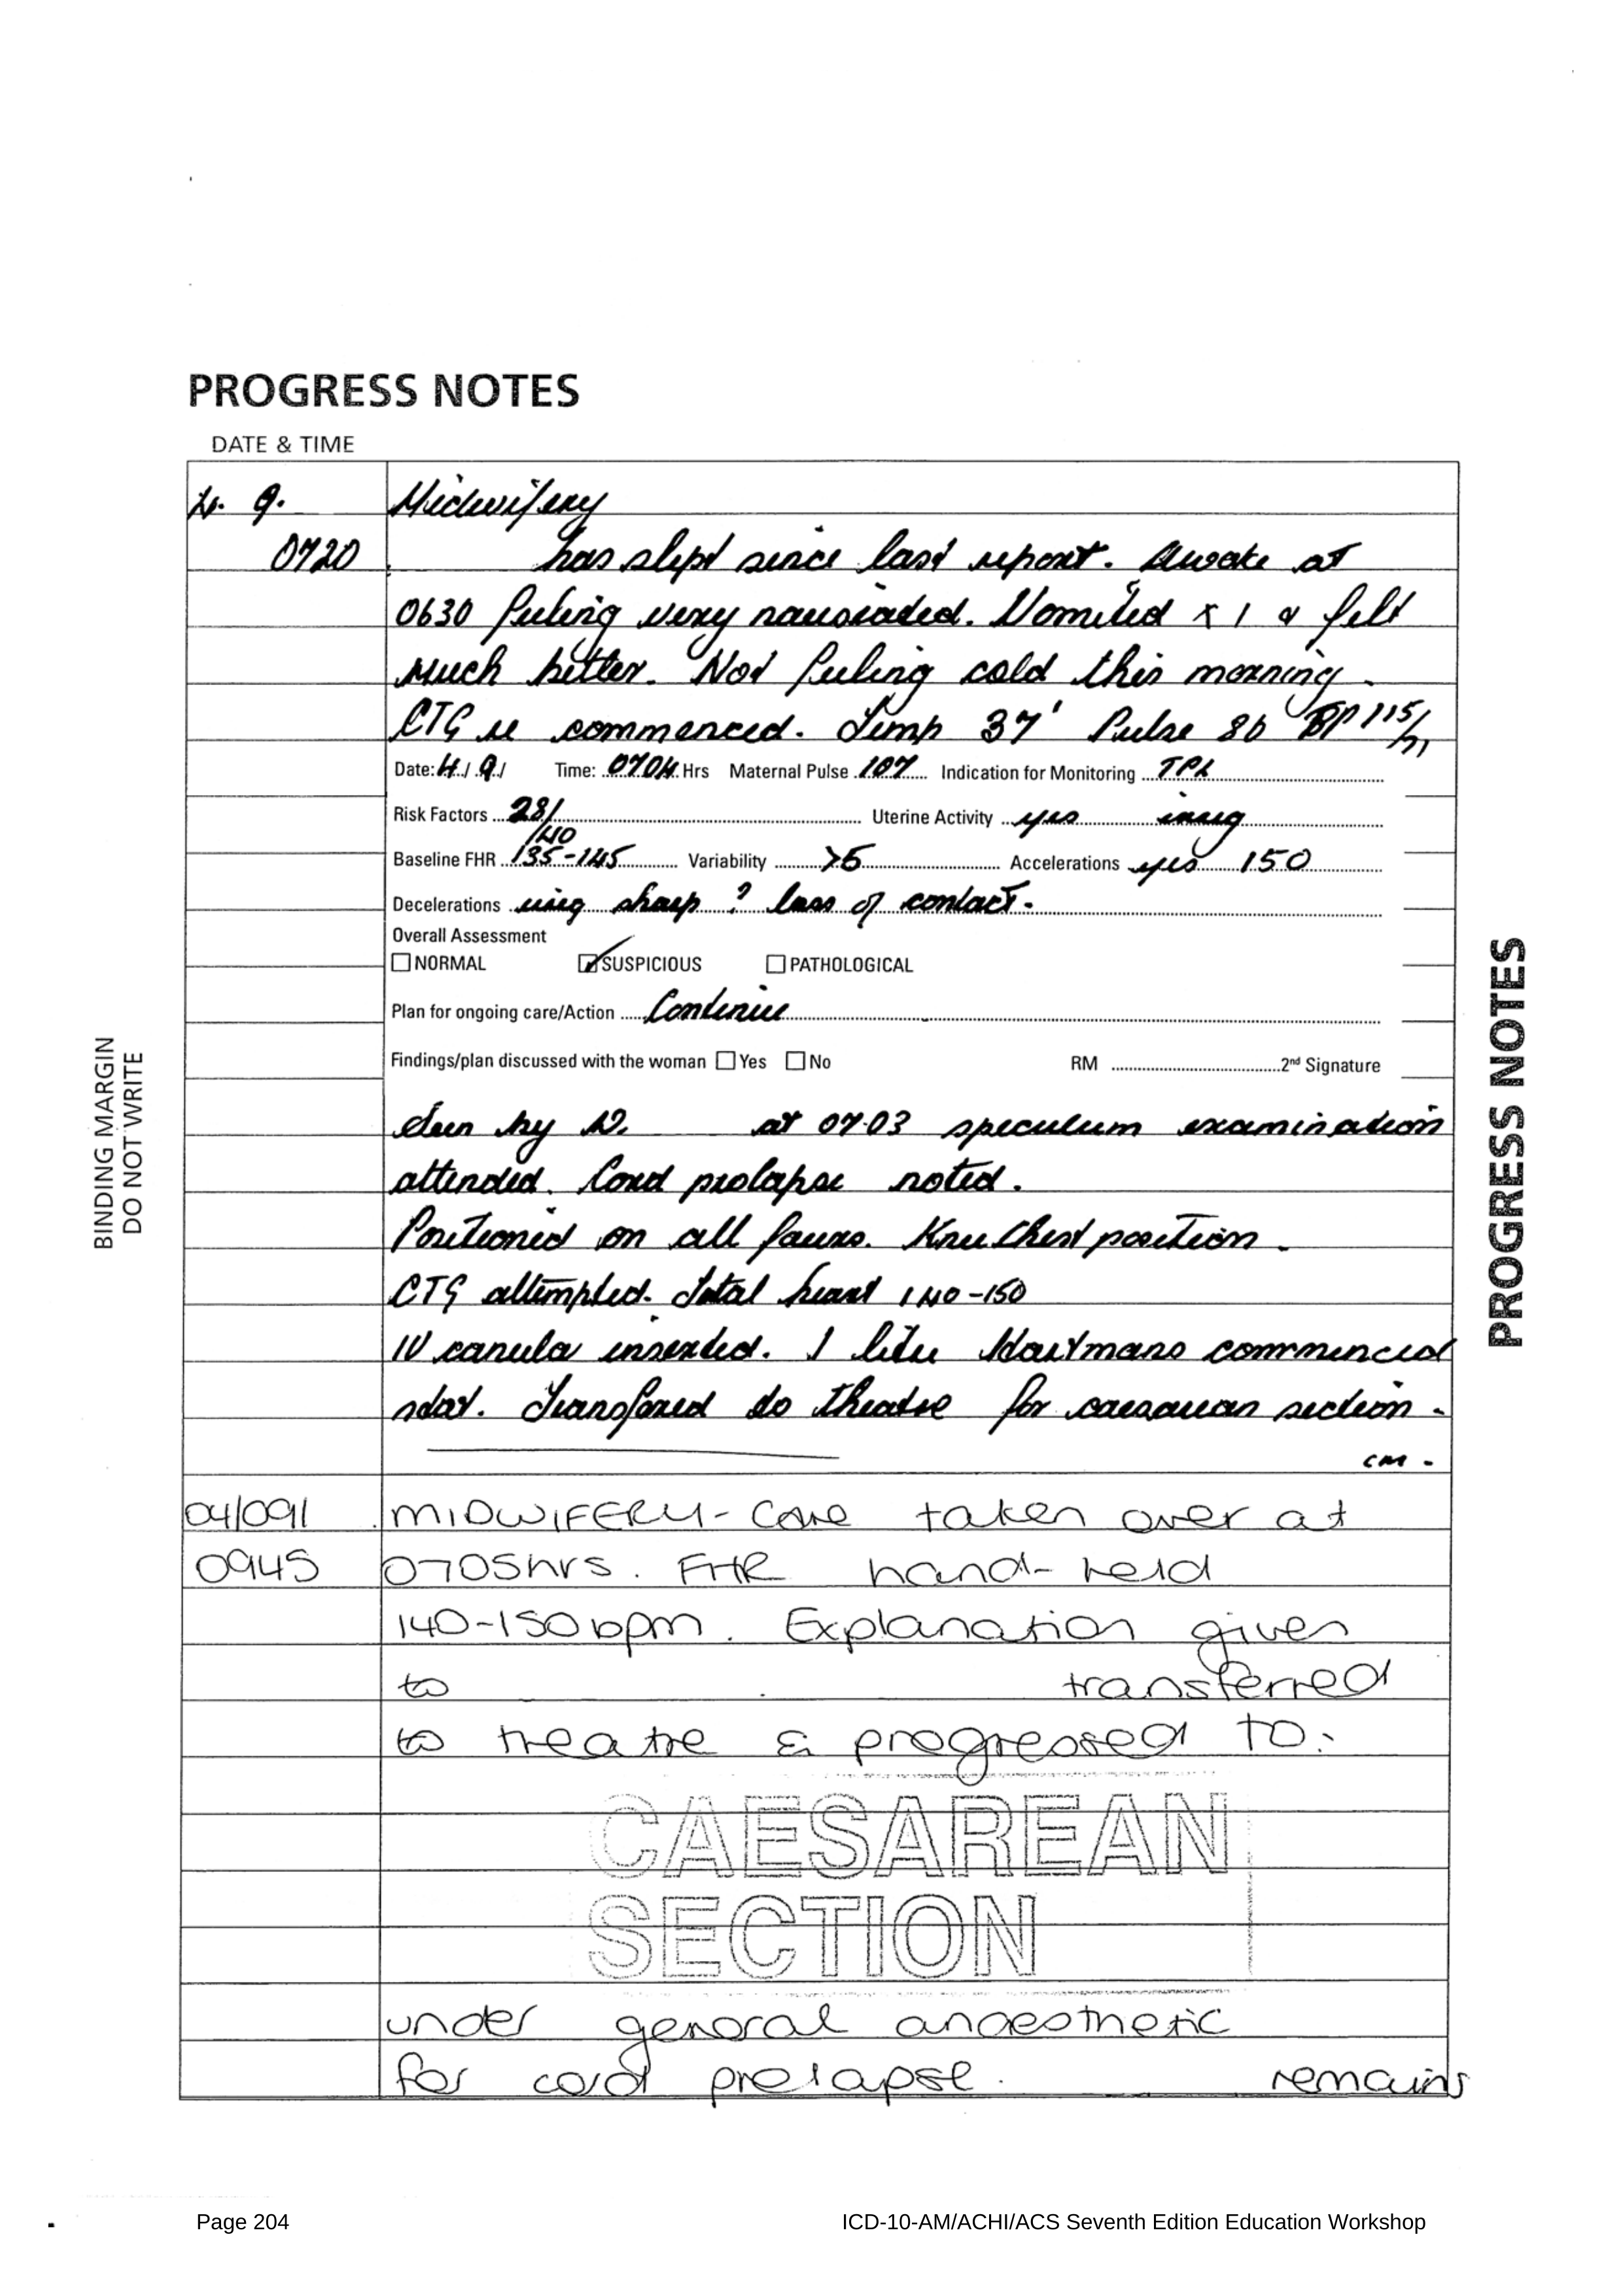 PROGRESS NOTES
DATE & TIME
4. 9. Midwifery
0720 has slept since last report. Awake at
0630 feeling very nauseated. Vomited x 1 & felt
much better. Not feeling cold this morning.
CTG re commenced. Temp 37' Pulse 86 BP 115/71
Date: 4/9/ Time: 0704 Hrs Maternal Pulse 107 Indication for Monitoring TPL
Risk Factors 28/40 Uterine Activity yes irreg
Baseline FHR 135-145 Variability >5 Accelerations yes 150
Decelerations sharp ? loss of contact.
Overall Assessment
NORMAL SUSPICIOUS PATHOLOGICAL
Plan for ongoing care/Action Continue
Findings/plan discussed with the woman Yes No RM 2nd Signature
Seen by Dr at 0703 speculum examination
attended. Cord prolapse noted.
Positioned on all fours. Knee Chest position.
CTG attempted. Fetal heart 140-150
IV canula inserted. 1 litre Hartmans commenced
stat. Transfered to theatre for caesarean section.
cm.
04/09/ MIDWIFERY - Care taken over at
0945 0705hrs. FHR hand-held
140-150bpm. Explanation given
to transferred
to theatre & progressed to:-
CAESAREAN
SECTION
under general anaesthetic
for cord prolapse. remains
BINDING MARGIN
DO NOT WRITE
PROGRESS NOTES
Page 204 ICD-10-AM/ACHI/ACS Seventh Edition Education Workshop